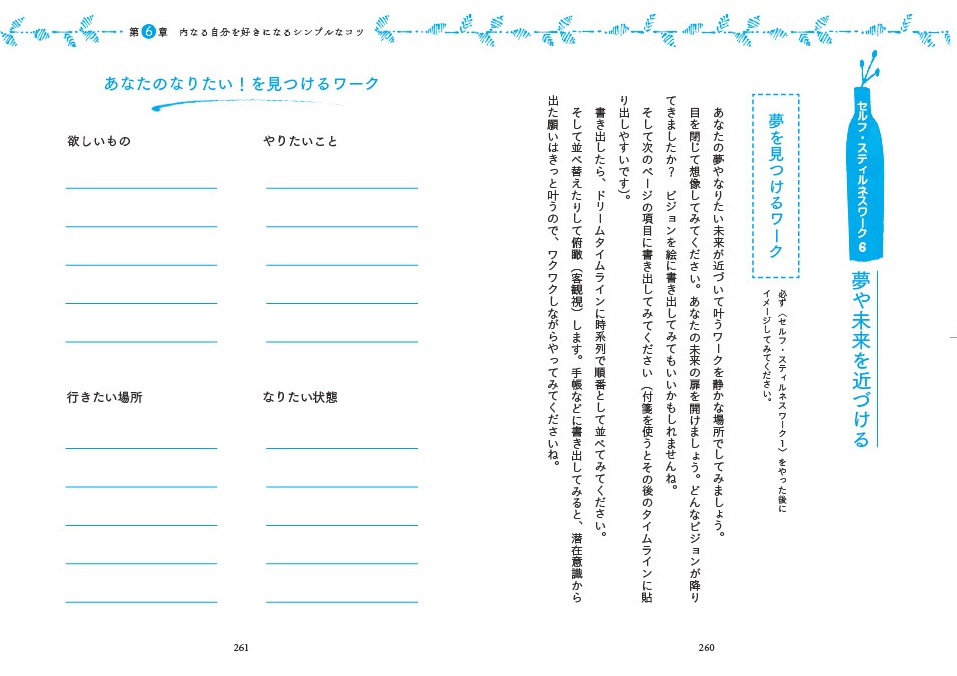 セルフ・スティルネスワーク6
夢や未来を近づける
夢を見つけるワーク
必ず〈セルフ・スティルネスワーク1〉をやった後に
イメージしてみてください。
あなたの夢やなりたい未来が近づいて叶うワークを静かな場所でしてみましょう。
目を閉じて想像してみてください。あなたの未来の扉を開けましょう。どんなビジョンが降り
てきましたか？　ビジョンを絵に書き出してみてもいいかもしれませんね。
そして次のページの項目に書き出してみてください（付箋を使うとその後のタイムラインに貼
り出しやすいです）。
書き出したら、ドリームタイムラインに時系列で順番として並べてみてください。
そして並べ替えたりして俯瞰（客観視）します。手帳などに書き出してみると、潜在意識から
出た願いはきっと叶うので、ワクワクしながらやってみてくださいね。
260
第6章　内なる自分を好きになるシンプルなコツ
あなたのなりたい！を見つけるワーク
やりたいこと
欲しいもの
なりたい状態
行きたい場所
261